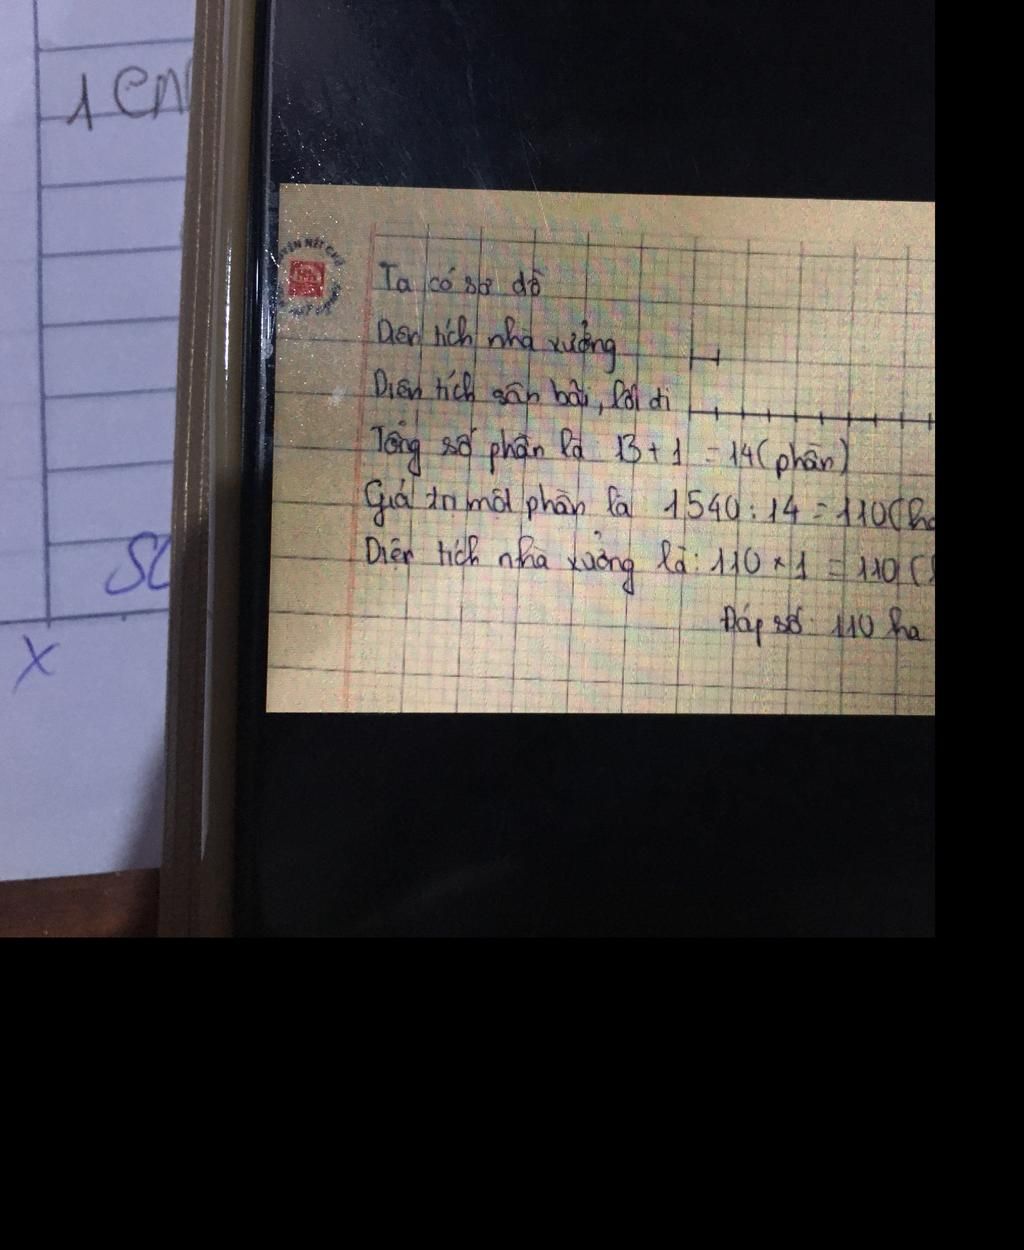 1 cm
Ta có sơ đồ
Diện tích nhà xưởng
Diện tích sân bãi, lối đi
Tổng số phần là 13 + 1 = 14 (phần)
Giá trị một phần là 1540 : 14 = 110 (ha
Diện tích nhà xưởng là: 110 × 1 = 110 (
Đáp số: 110 ha
X